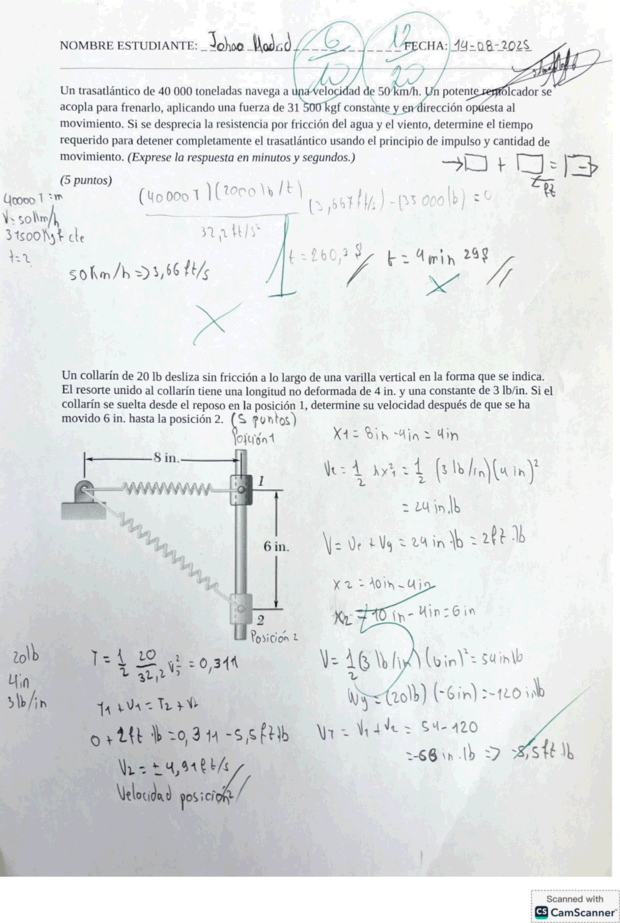 NOMBRE ESTUDIANTE: Johao Madrid FECHA: 14-08-2025
6/10
12/20
Un trasatlántico de 40 000 toneladas navega a una velocidad de 50 km/h. Un potente remolcador se
acopla para frenarlo, aplicando una fuerza de 31 500 kgf constante y en dirección opuesta al
movimiento. Si se desprecia la resistencia por fricción del agua y el viento, determine el tiempo
requerido para detener completamente el trasatlántico usando el principio de impulso y cantidad de
movimiento. (Exprese la respuesta en minutos y segundos.)
(5 puntos)
40000 T = m
V = 50 Km/h
31500 Kgf cte
t = ?
(40000T)(2000 lb/t)
32,2 ft/s²
(3,667 ft/s) - (35 000 lb) = 0
50 Km/h => 3,66 ft/s
t = 260,2 s
t = 4 min 29 s
Un collarín de 20 lb desliza sin fricción a lo largo de una varilla vertical en la forma que se indica.
El resorte unido al collarín tiene una longitud no deformada de 4 in. y una constante de 3 lb/in. Si el
collarín se suelta desde el reposo en la posición 1, determine su velocidad después de que se ha
movido 6 in. hasta la posición 2. (5 puntos)
Posición 1
8 in.
1
6 in.
2
Posición 2
X1 = 8in - 4in = 4in
Ve = 1/2 kx²₁ = 1/2 (3 lb/in)(4in)²
= 24 in.lb
V = Ve + Vg = 24 in lb = 2 ft.lb
X2 = 10in - 4in
X2 = 10in - 4in = 6in
V = 1/2 (3 lb/in)(6in)² = 54 in lb
Wy = (20lb)(-6in) = -120 in lb
VT = V1 + V2 = 54 - 120
= -66 in.lb => -8,5 ft lb
20lb
4in
3 lb/in
T = 1/2 20/32,2 V²₂ = 0,311
T1 + V1 = T2 + V2
0 + 2ft lb = 0,311 - 5,5 ft lb
V2 = ± 4,91 ft/s
Velocidad posición 2
Scanned with
CS CamScanner